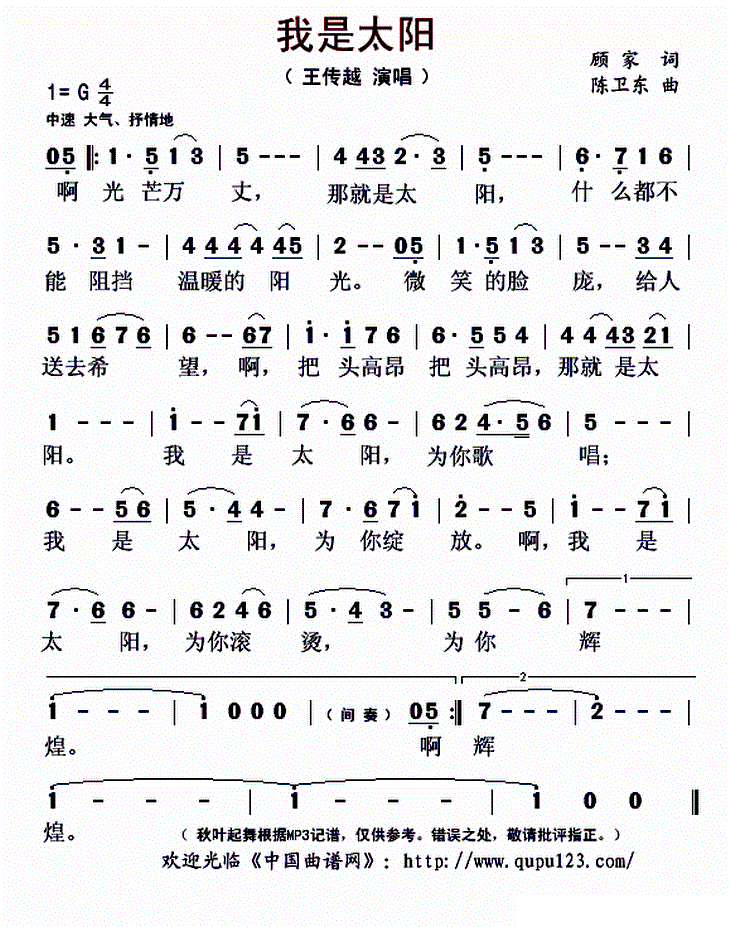 我是太阳
（ 王传越 演唱 ）
顾家 词
1= G 4/4
陈卫东 曲
中速 大气、抒情地
05 ‖: 1· 5 1 3 | 5 - - - | 4 43 2· 3 | 5 - - - | 6· 7 1 6 |
啊 光 芒万 丈， 那就是太 阳， 什 么都不
5· 31 - | 4 4 4 4 45 | 2 - - 05 | 1· 5 1 3 | 5 - - 34 |
能 阻挡 温暖的 阳 光。 微 笑 的脸 庞， 给人
5 1 6 7 6 | 6 - - 67 | 1· 1 7 6 | 6· 5 5 4 | 4 4 43 21 |
送去希 望， 啊， 把 头高昂 把 头高昂， 那就 是太
1 - - - | 1 - - 71 | 7· 6 6 - | 6 2 4· 5 6 | 5 - - - |
阳。 我 是 太 阳， 为你歌 唱；
6 - - 56 | 5· 4 4 - | 7· 6 7 1 | 2 - - 5 | 1 - - 71 |
我 是 太 阳， 为 你绽 放。 啊， 我 是
1
7· 6 6 - | 6 2 4 6 | 5· 4 3 - | 5 5 - 6 | 7 - - - |
太 阳， 为你滚 烫， 为 你 辉
2
1 - - - | 1 0 0 0 | （ 间 奏 ） 05 :‖ 7 - - - | 2 - - - |
煌。 啊 辉
1 - - - | 1 - - - | 1 0 0 ‖
煌。 （ 秋叶起舞根据MP3记谱，仅供参考。错误之处，敬请批评指正。）
欢迎光临《中国曲谱网》：http://www.qupu123.com/